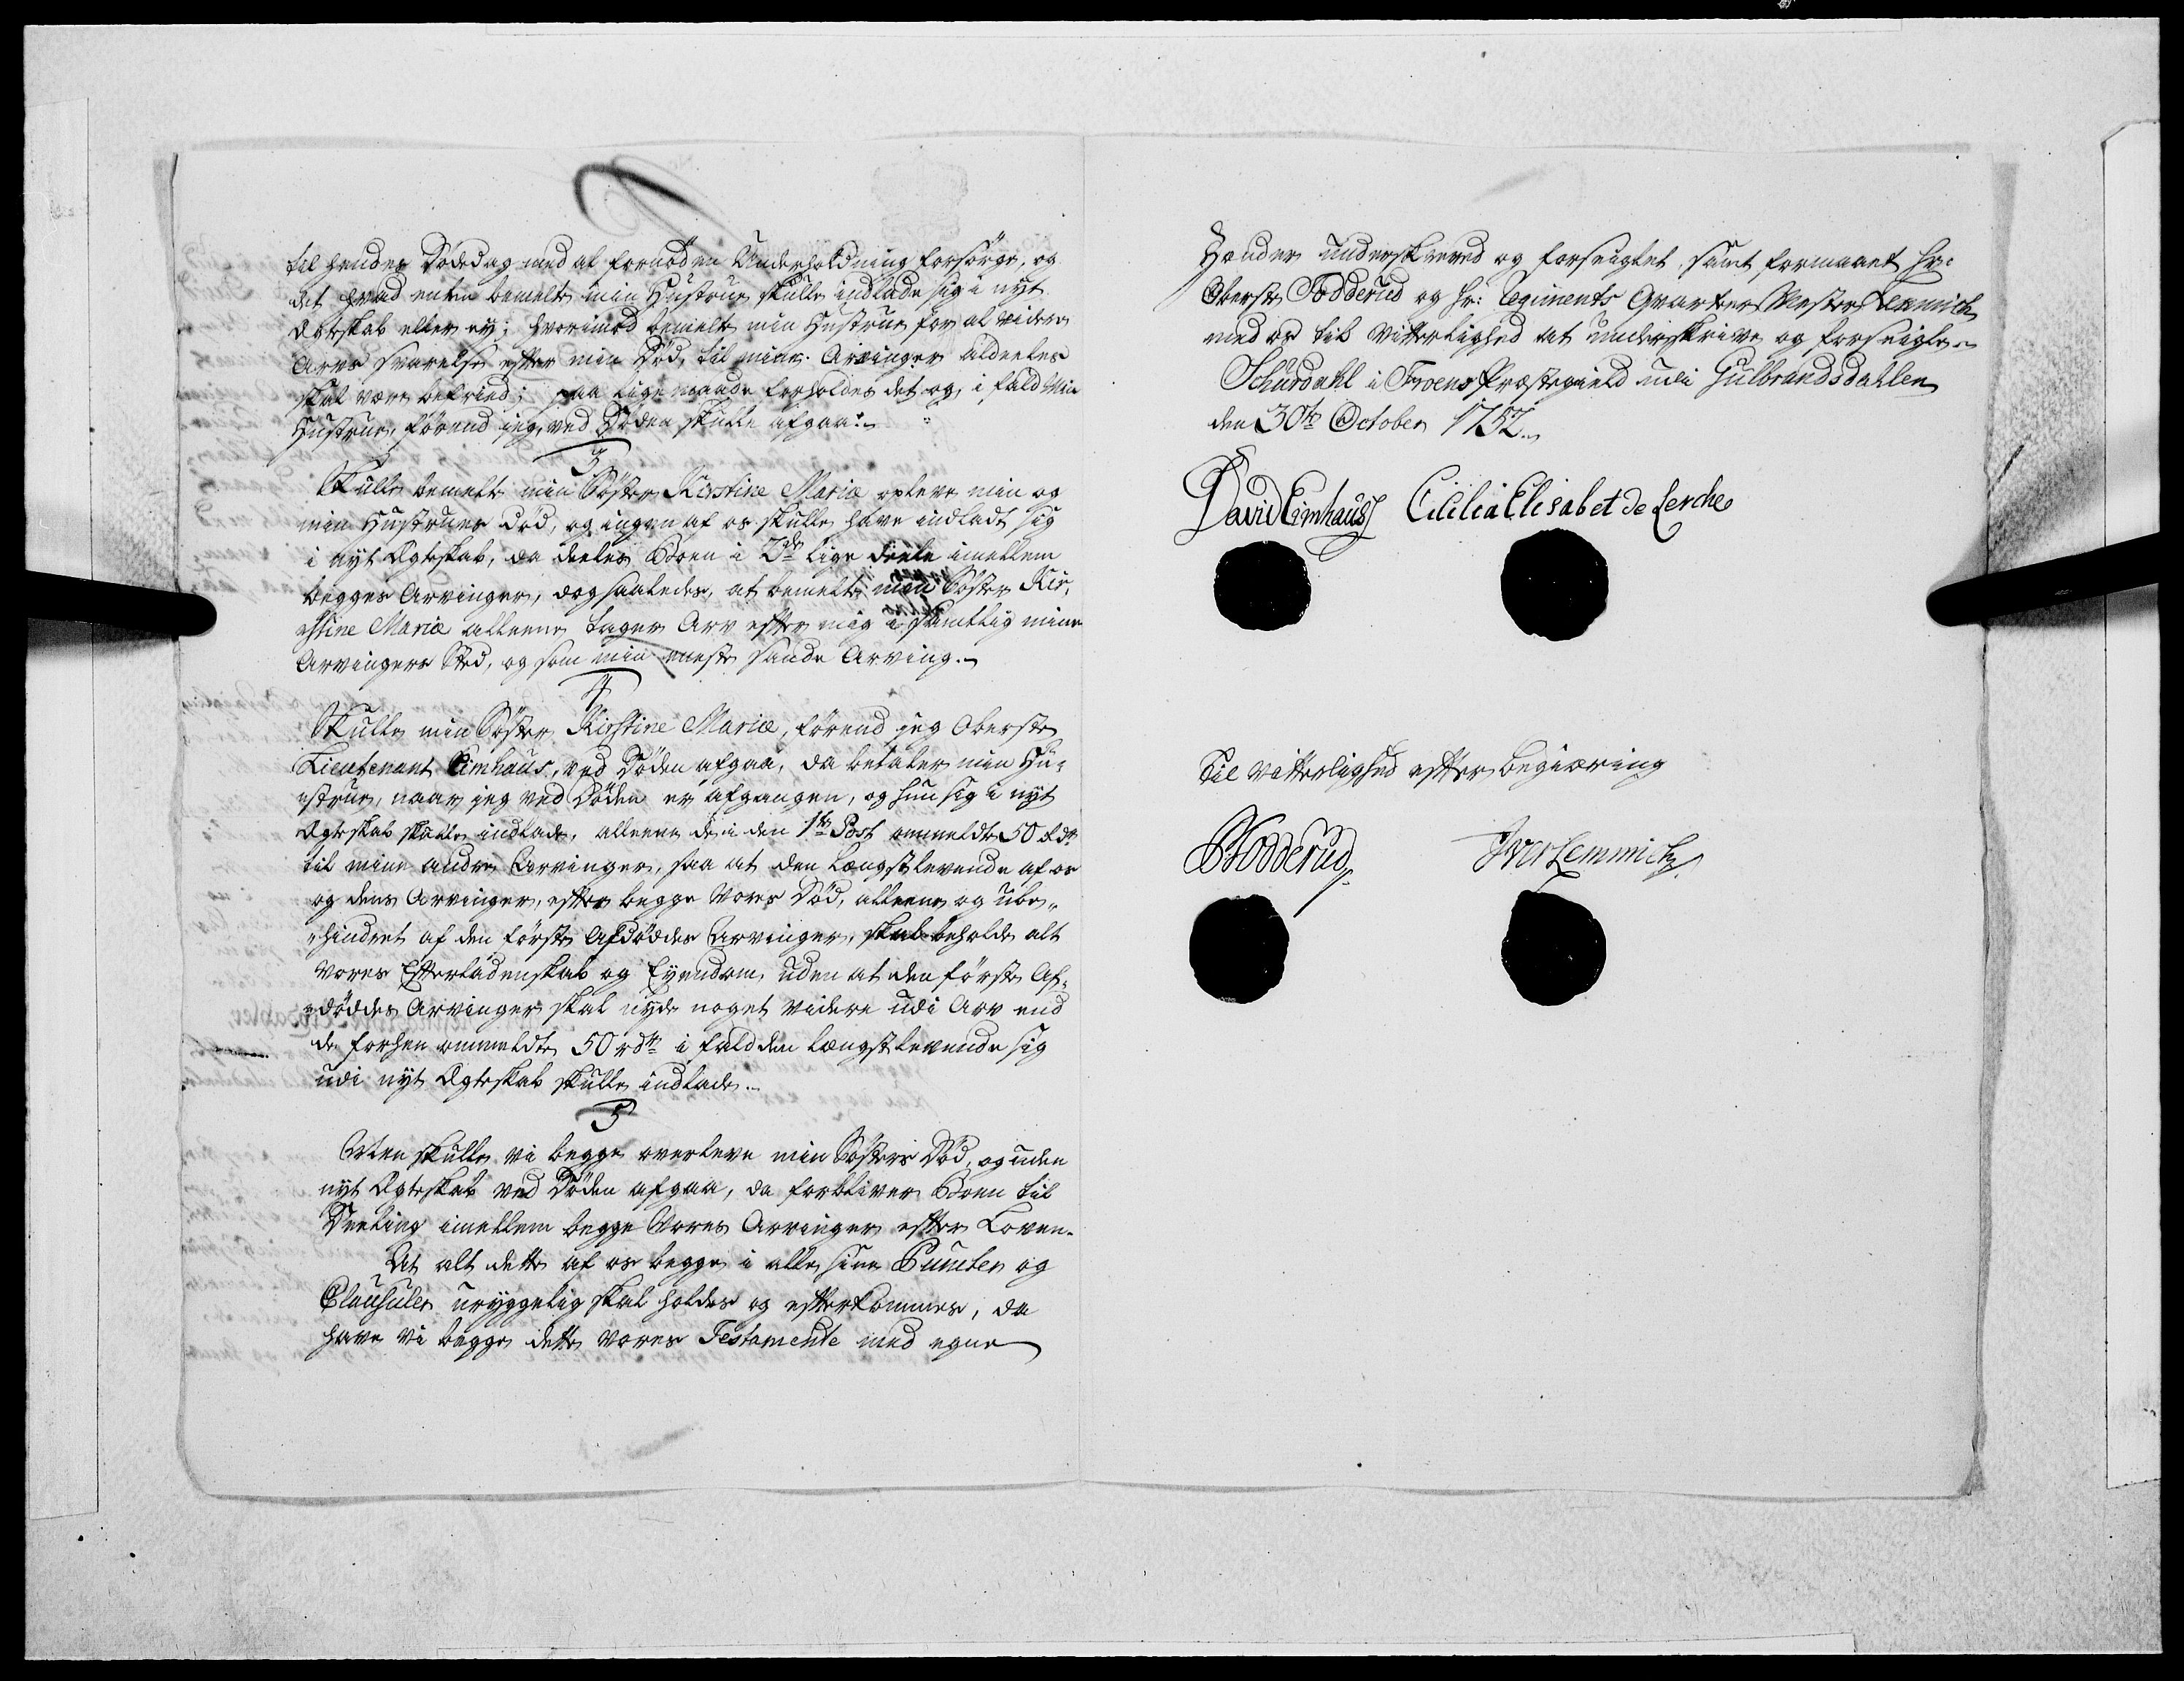 til hendes Dødedag med al fornøden Underholdning forsørge, og
det hvad enten bemelte min Hustrue skulle indlade sig i nyt
Ægteskab eller ey; hvorimod bemelte min Hustrue for al videre
Arvs svarelse efter min Død, til mine Arvinger aldeeles
skal være befried; paa lige maade forholdes det og, i fald Min
Hustrue, førend jeg, ved Døden skulle afgaae.
3
Skulle bemelte min Søster Kirstine Maria opleve min og
min Hustrues Død, og ingen af os skulle have indladt sig
i nyt Ægteskab, da deeles Boen i 2de lige deele imellem
begges Arvinger, dog saaledes, at bemelte min Søster Kir,
stine Maria alleene tager Arv efter mig i samtlig mine
Arvingers Sted, og som min eneste sande Arving.
4
Skulle min Søster Kirstine Maria, førend jeg Oberste
Lieutenant Eimhaus, ved Døden afgaa, da betaler min Hu-
strue, naar jeg ved Døden er afgangen, og hun sig i nyt
Ægteskab skulle indlade, alleene de i den 1te Post ommeldte 50 rdr
til mine andre Arvinger, saa at den Længstlevende af os
og dens Arvinger, efter begge Vores Død, alleene og ube,,
,,hindret af den første Afdøddes Arvinger, skal beholde alt
Vores Efterladenskab og Eyendom, uden at den første Af-
døddes Arvinger skal nyde noget videre udi Arv end
de forhen ommeldte 50 rdr i fald den længstlevende sig
udi nyt Ægteskab skulle indlade.
5
Men skulle vi begge overleve min Søsters Død, og uden
nyt Ægteskab ved Døden afgaa, da forbliver Boen til
Deeling imellem begge Vores Arvinger efter Loven.
At alt dette af os begge i alle sine Puncter og
Clausuler uryggelig skal holdes og efterkommes, da
have vi begge dette vores Testamente med egne
Hænder underskreved og forseiglet, samt formaaet Hr:
Oberste Fodderud og Hr: Regiments Qvarteer Mester Lemmich
med os til Vitterlighed at underskrive og forseigle.
Schurdahl i Froens Præstegield udi Gulbrandsdahlen
den 30te October 1752.
David Eimhaus Cicilia Elisabet de Lerche
Til vitterlighed efter begiæring
Fodderud Iver Lemmich